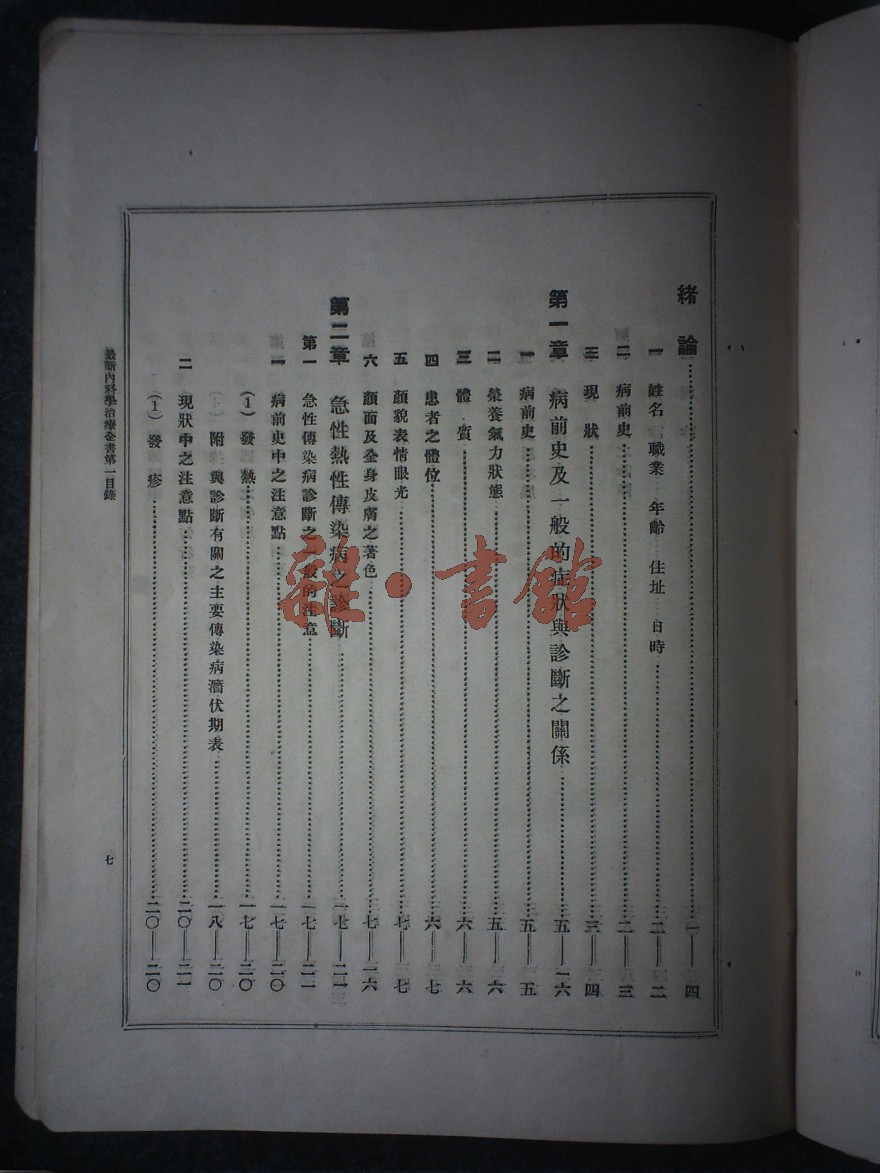 緒論……一——四
一 姓名 職業 年齡 住址 日時……二——二
二 病前史……二——三
三 現狀……三——四
第一章 病前史及一般的症狀與診斷之關係……五——一六
一 病前史……五——五
二 榮養氣力狀態……五——六
三 體質……六——六
四 患者之體位……六——七
五 顏貌表情眼光……七——七
六 顏面及全身皮膚之著色……七——一六
第二章 急性熱性傳染病之診斷……一七——二一
第一 急性傳染病診斷之一般的注意……一七——二一
一 病前史中之注意點……一七——二〇
(1) 發熱……一七——二〇
附 與診斷有關之主要傳染病潛伏期表……一八——二〇
二 現狀中之注意點……二〇——二一
(1) 發疹……二〇——二〇
最新內科學治療全書第一目錄
七
雜·書館